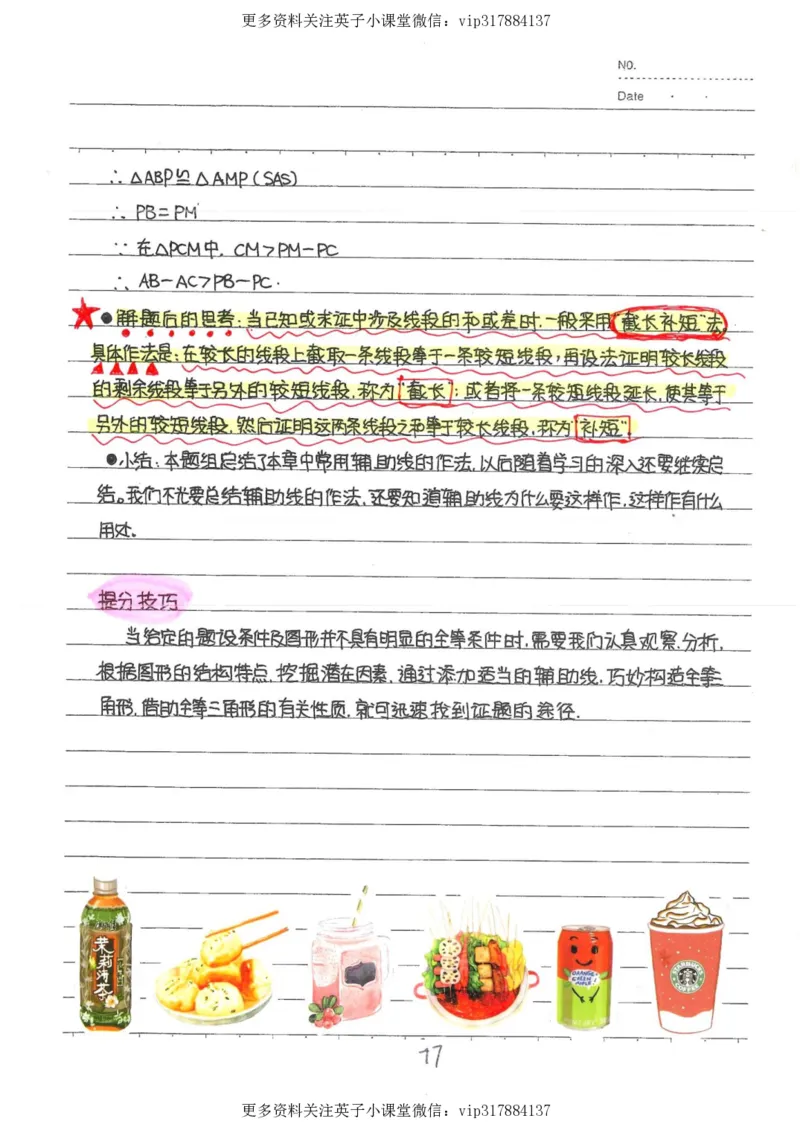 更多资料关注英子小课堂微信：vip317884137
NO.
Date
∴ △ABP≌△AMP(SAS)
∴ PB=PM
∵ 在△PCM中, CM>PM-PC
∴ AB-AC>PB-PC.
★●解题后的思考:当已知或求证中涉及线段的和或差时.一般采用"截长补短"法,
具体作法是:在较长的线段上截取一条线段等于一条较短线段,再设法证明较长线段
的剩余线段等于另外的较短线段,称为"截长";或者将一条较短线段延长,使其等于
另外的较短线段,然后证明这两条线段之和等于较长线段,称为"补短".
●小结:本题组总结了本章中常用辅助线的作法,以后随着学习的深入还要继续总
结。我们不光要总结辅助线的作法,还要知道辅助线为什么要这样作,这样作有什么
用处.
提分技巧
当给定的题设条件及图形并不具有明显的全等条件时,需要我们认真观察.分析,
根据图形的结构特点,挖掘潜在因素,通过添加适当的辅助线,巧妙构造全等三
角形,借助全等三角形的有关性质,就可迅速找到证题的途径.
茉莉清茶
STARBUCKS
COFFEE
17
更多资料关注英子小课堂微信：vip317884137